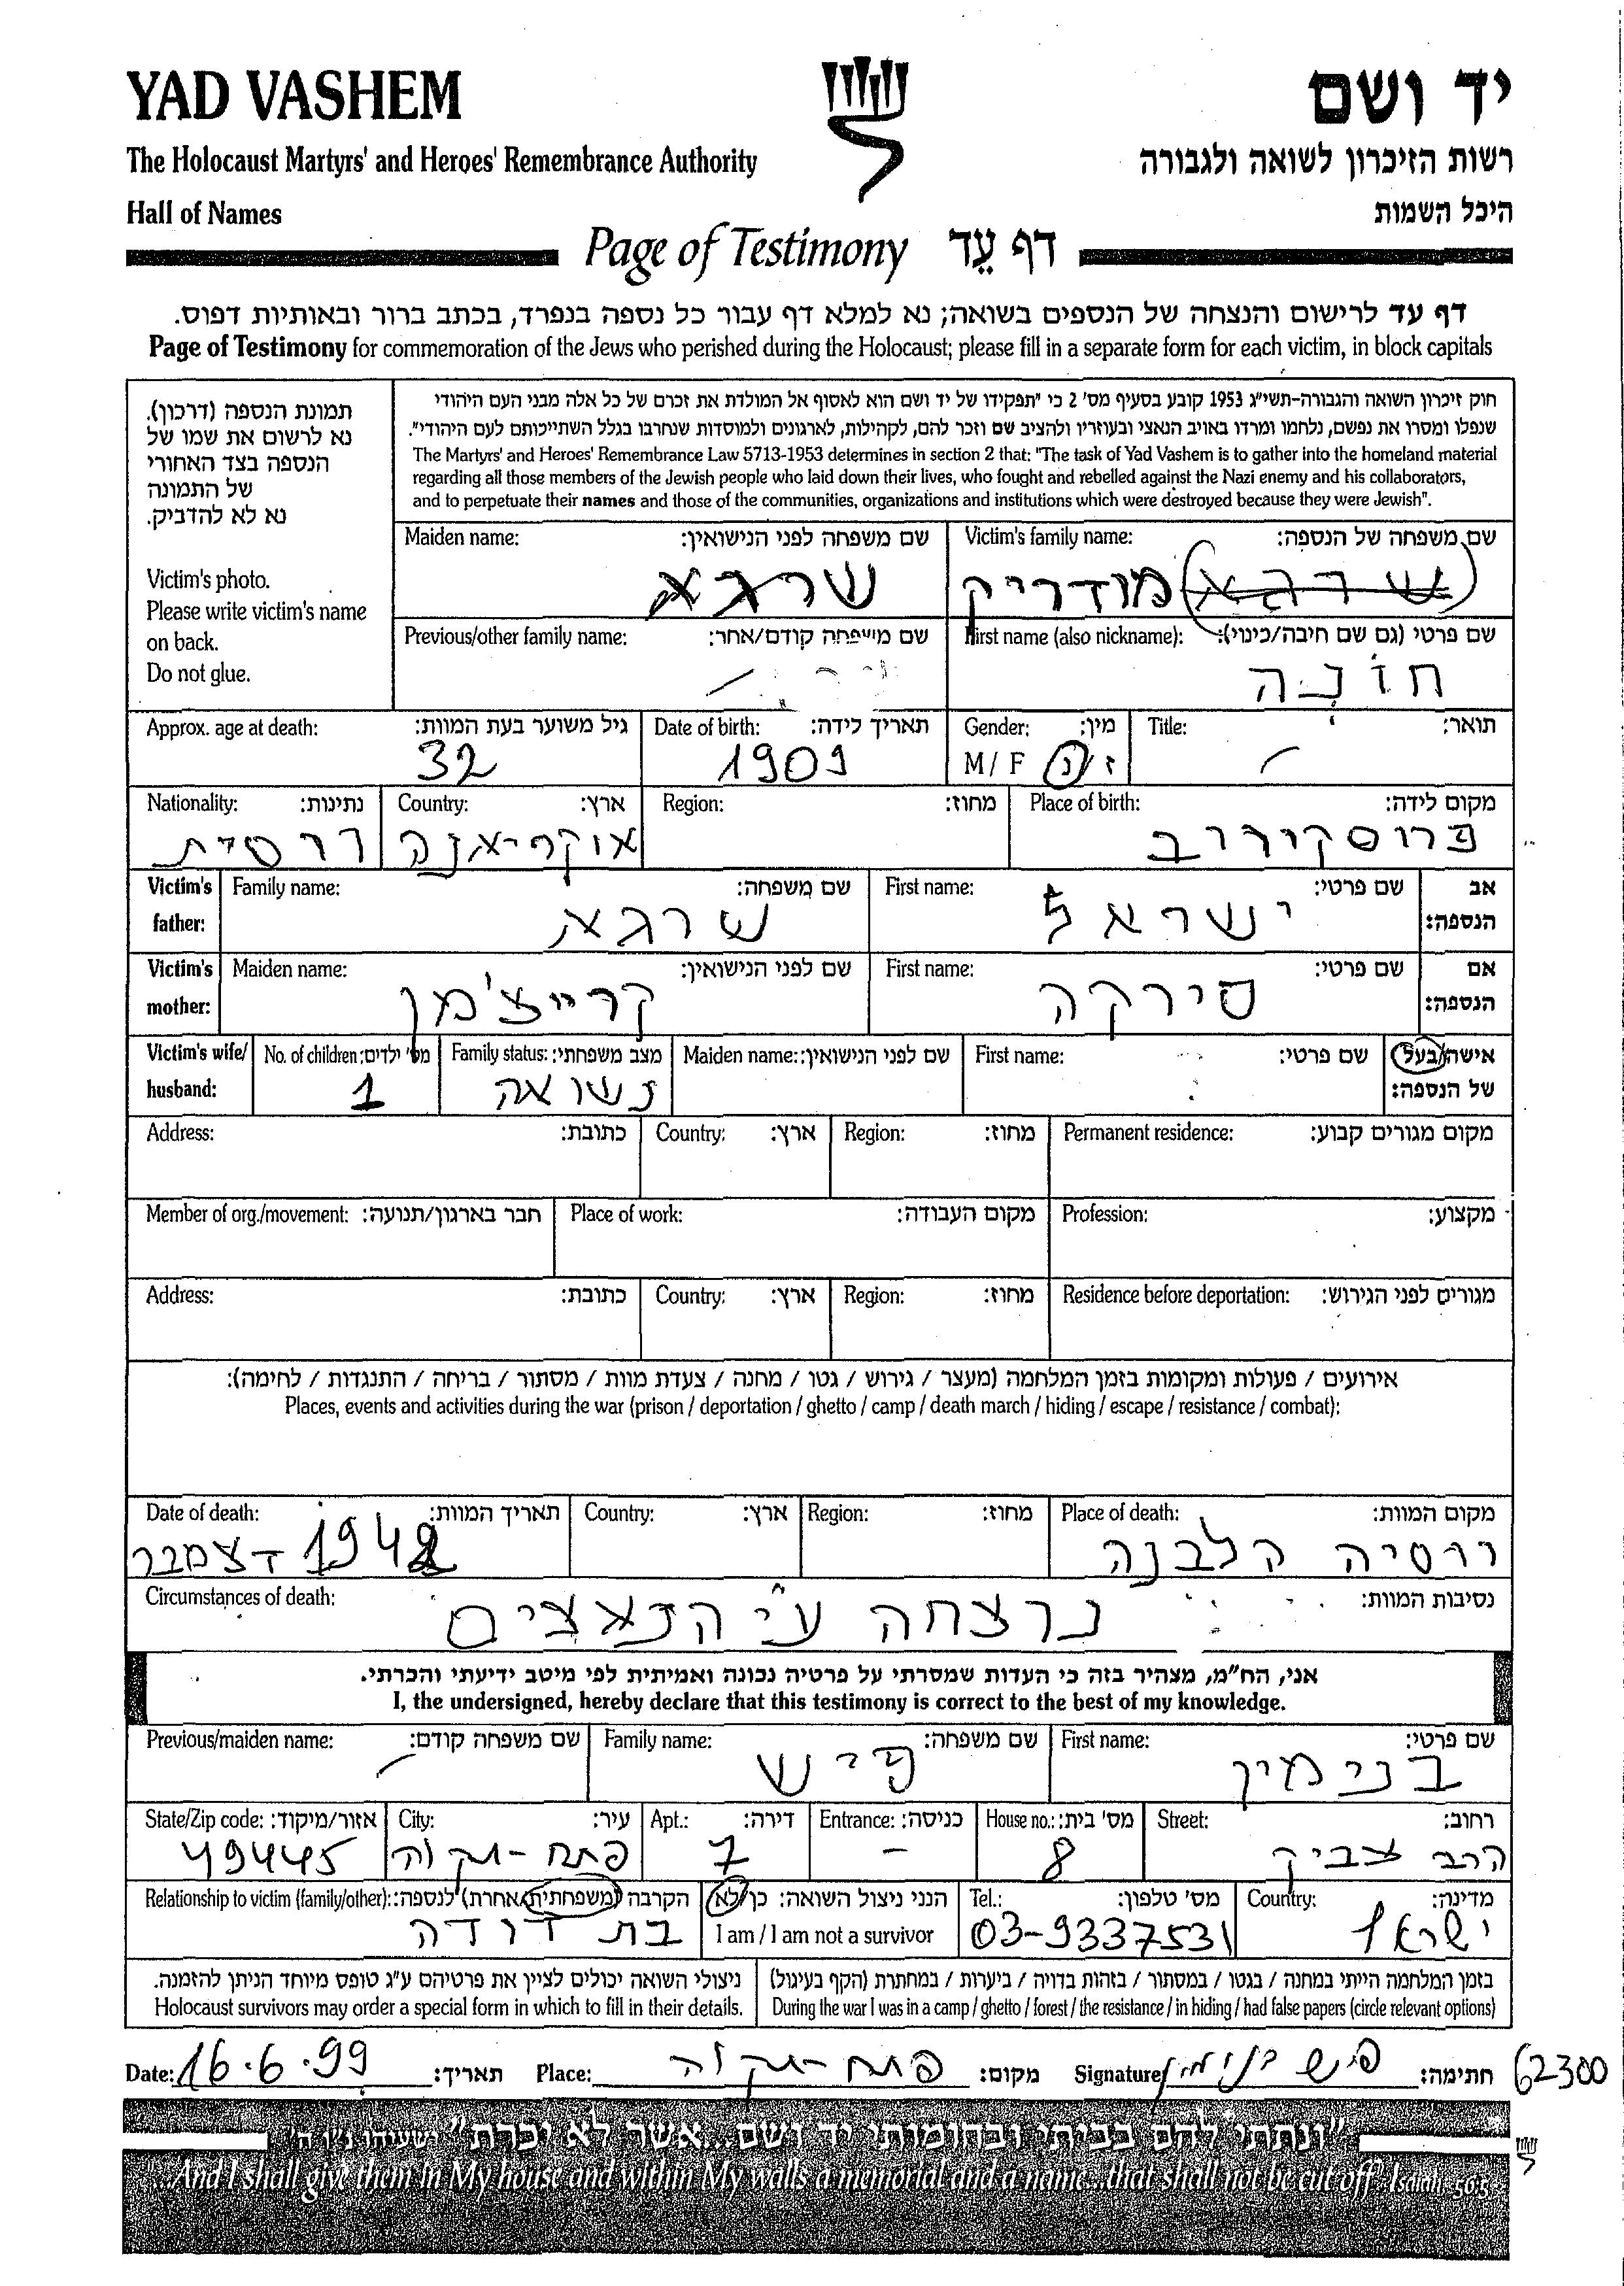 YAD VASHEM
יד ושם
The Holocaust Martyrs' and Heroes' Remembrance Authority
רשות הזיכרון לשואה ולגבורה
Hall of Names
היכל השמות
Page of Testimony דף עֵד
דף עד לרישום והנצחה של הנספים בשואה; נא למלא דף עבור כל נספה בנפרד, בכתב ברור ובאותיות דפוס.
Page of Testimony for commemoration of the Jews who perished during the Holocaust; please fill in a separate form for each victim, in block capitals
חוק זיכרון השואה והגבורה-תשי"ג 1953 קובע בסעיף מס' 2 כי "תפקידו של יד ושם הוא לאסוף אל המולדת את זכרם של כל אלה מבני העם היהודי
שנפלו ומסרו את נפשם, נלחמו ומרדו באויב הנאצי ובעוזריו ולהציב שם וזכר להם, לקהילות, לארגונים ולמוסדות שנחרבו בגלל השתייכותם לעם היהודי".
The Martyrs' and Heroes' Remembrance Law 5713-1953 determines in section 2 that: "The task of Yad Vashem is to gather into the homeland material
regarding all those members of the Jewish people who laid down their lives, who fought and rebelled against the Nazi enemy and his collaborators,
and to perpetuate their names and those of the communities, organizations and institutions which were destroyed because they were Jewish".
תמונת הנספה (דרכון).
נא לרשום את שמו של
הנספה בצד האחורי
של התמונה
נא לא להדביק.
Victim's photo.
Please write victim's name
on back.
Do not glue.
Victim's family name: שם משפחה של הנספה:
שרגא מודריק
Maiden name: שם משפחה לפני הנישואין:
שרגא
First name (also nickname): שם פרטי (גם שם חיבה/כינוי):
חונה
Previous/other family name: שם משפחה קודם/אחר:
Title: תואר:
Gender: מין:
M / F ז / נ
Date of birth: תאריך לידה:
1909
Approx. age at death: גיל משוער בעת המוות:
32
Place of birth: מקום לידה:
פרוסקירוב
Region: מחוז:
Country: ארץ:
אוקריאנה
Nationality: נתינות:
רוסית
Victim's father: אב הנספה:
First name: שם פרטי:
ישראל
Family name: שם משפחה:
שרגא
Victim's mother: אם הנספה:
First name: שם פרטי:
סירקה
Maiden name: שם לפני הנישואין:
קרייצ'מן
Victim's wife/ husband: אישה/בעל של הנספה:
First name: שם פרטי:
Maiden name: שם לפני הנישואין:
Family status: מצב משפחתי:
נשואה
No. of children: מס' ילדים:
1
Permanent residence: מקום מגורים קבוע:
Region: מחוז:
Country: ארץ:
Address: כתובת:
Profession: מקצוע:
Place of work: מקום העבודה:
Member of org./movement: חבר בארגון/תנועה:
Residence before deportation: מגורים לפני הגירוש:
Region: מחוז:
Country: ארץ:
Address: כתובת:
אירועים / פעולות ומקומות בזמן המלחמה (מעצר / גירוש / גטו / מחנה / צעדת מוות / מסתור / בריחה / התנגדות / לחימה):
Places, events and activities during the war (prison / deportation / ghetto / camp / death march / hiding / escape / resistance / combat):
Place of death: מקום המוות:
רוסיה הלבנה
Region: מחוז:
Country: ארץ:
Date of death: תאריך המוות:
דצמבר
Circumstances of death: נסיבות המוות:
נרצחה ע"י הנאצים
אני, הח"מ, מצהיר בזה כי העדות שמסרתי על פרטיה נכונה ואמיתית לפי מיטב ידיעתי והכרתי.
I, the undersigned, hereby declare that this testimony is correct to the best of my knowledge.
First name: שם פרטי:
בנימין
Family name: שם משפחה:
פיש
Previous/maiden name: שם משפחה קודם:
Street: רחוב:
הרב צביק
House no.: מס' בית:
8
Entrance: כניסה:
–
Apt.: דירה:
7
City: עיר:
פתח-תקוה
State/Zip code: אזור/מיקוד:
49445
Country: מדינה:
ישראל
Tel.: מס' טלפון:
03-9337531
הנני ניצול השואה: כן/לא
I am / I am not a survivor
Relationship to victim (family/other): הקרבה (משפחתית/אחרת) לנספה:
בת דודה
בזמן המלחמה הייתי במחנה / בגטו / במסתור / בזהות בדויה / ביערות / במחתרת (הקף בעיגול)
During the war I was in a camp / ghetto / forest / the resistance / in hiding / had false papers (circle relevant options)
ניצולי השואה יכולים לציין את פרטיהם ע"ג טופס מיוחד הניתן להזמנה.
Holocaust survivors may order a special form in which to fill in their details.
Date: 16.6.99 תאריך: Place: פתח-תקוה מקום: Signature פיש בנימין חתימה: 62300
"ונתתי להם בביתי ובחומותי יד ושם...אשר לא יכרת" ישעיהו נ"ו ה'
"...And I shall give them in My house and within My walls a memorial and a name...that shall not be cut off" Isaiah 56:5